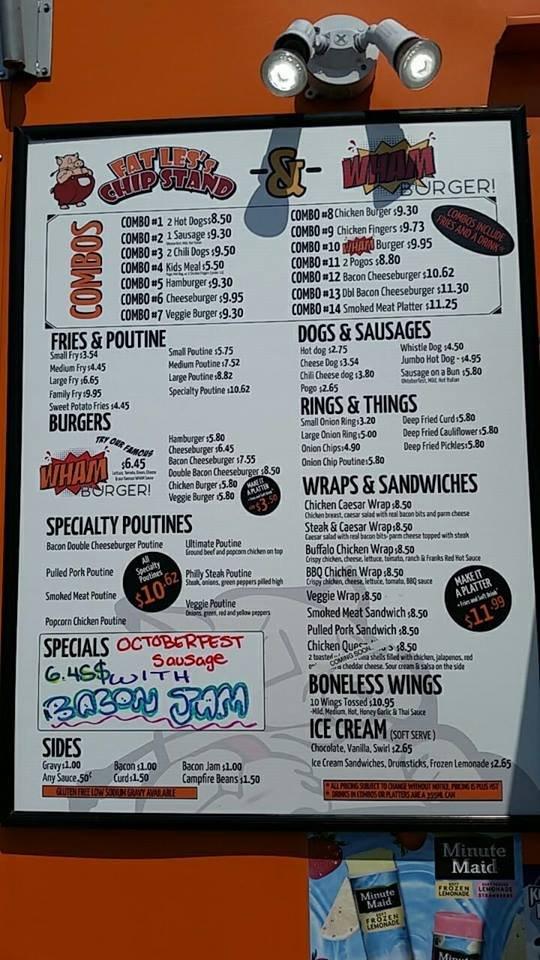 FAT LES'S
CHIP STAND
-&-
WHAM
BURGER!
COMBOS
COMBO #1 2 Hot Dogs $8.50
COMBO #2 1 Sausage $9.30
COMBO #3 2 Chili Dogs $9.50
COMBO #4 Kids Meal $5.50
COMBO #5 Hamburger $9.30
COMBO #6 Cheeseburger $9.95
COMBO #7 Veggie Burger $9.30
COMBO #8 Chicken Burger $9.30
COMBO #9 Chicken Fingers $9.73
COMBO #10 WHAM Burger $9.95
COMBO #11 2 Pogos $8.80
COMBO #12 Bacon Cheeseburger $10.62
COMBO #13 Dbl Bacon Cheeseburger $11.30
COMBO #14 Smoked Meat Platter $11.25
COMBOS INCLUDE
FRIES AND A DRINK*
FRIES & POUTINE
Small Fry $3.54
Medium Fry $4.45
Large Fry $6.65
Family Fry $9.95
Sweet Potato Fries $4.45
Small Poutine $5.75
Medium Poutine $7.52
Large Poutine $8.82
Specialty Poutine $10.62
BURGERS
TRY OUR FAMOUS
WHAM
BURGER!
$6.45
Hamburger $5.80
Cheeseburger $6.45
Bacon Cheeseburger $7.55
Double Bacon Cheeseburger $8.50
Chicken Burger $5.80
Veggie Burger $5.80
MAKE IT
A PLATTER
$3.50
SPECIALTY POUTINES
Bacon Double Cheeseburger Poutine
Pulled Pork Poutine
Smoked Meat Poutine
Popcorn Chicken Poutine
All
Specialty
Poutines
$10.62
Ultimate Poutine
Ground beef and popcorn chicken on top
Philly Steak Poutine
Steak, onions, green peppers pilled high
Veggie Poutine
Onions, green, red and yellow peppers
SPECIALS OCTOBERFEST
Sausage
6.45$ WITH
BACON JAM
SIDES
Gravy $1.00
Any Sauce .50¢
Bacon $1.00
Curd $1.50
Bacon Jam $1.00
Campfire Beans $1.50
GLUTEN FREE LOW SODIUM GRAVY AVAILABLE
DOGS & SAUSAGES
Hot dog $2.75
Cheese Dog $3.54
Chili Cheese dog $3.80
Pogo $2.65
Whistle Dog $4.50
Jumbo Hot Dog - $4.95
Sausage on a Bun $5.80
Oktoberfest, Mild, Hot Italian
RINGS & THINGS
Small Onion Ring $3.20
Large Onion Ring $5.00
Onion Chips $4.90
Onion Chip Poutine $5.80
Deep Fried Curd $5.80
Deep Fried Cauliflower $5.80
Deep Fried Pickles $5.80
WRAPS & SANDWICHES
Chicken Caesar Wrap $8.50
Chicken breast, caesar salad with real bacon bits and parm cheese
Steak & Caesar Wrap $8.50
Caesar salad with real bacon bits- parm cheese topped with steak
Buffalo Chicken Wrap $8.50
Crispy chicken, cheese, lettuce, tomato, ranch & Franks Red Hot Sauce
BBQ Chicken Wrap $8.50
Crispy chicken, cheese, lettuce, tomato, BBQ sauce
Veggie Wrap $8.50
Smoked Meat Sandwich $8.50
Pulled Pork Sandwich $8.50
Chicken Ques $8.50
COMING SOON
2 toasted shells filled with chicken, jalapenos, red
cheddar cheese. Sour cream & salsa on the side
MAKE IT
A PLATTER
+ Fries and Soft Drink*
$11.99
BONELESS WINGS
10 Wings Tossed $10.95
-Mild, Medium, Hot, Honey Garlic & Thai Sauce
ICE CREAM (SOFT SERVE)
Chocolate, Vanilla, Swirl $2.65
Ice Cream Sandwiches, Drumsticks, Frozen Lemonade $2.65
* ALL PRICING SUBJECT TO CHANGE WITHOUT NOTICE, PRICING IS PLUS HST
* DRINKS IN COMBOS OR PLATTERS ARE A 355ML CAN
Minute
Maid
SOFT
FROZEN
LEMONADE
LEMONADE
Minute
Maid
SOFT
FROZEN
LEMONADE